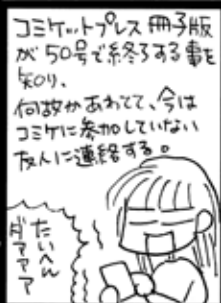 コミケットプレス 冊子版
が 50号で終了する事を
知り、
何故かあわてて、今は
コミケに参加していない
友人に連絡する。
たいへん
ダァァァ